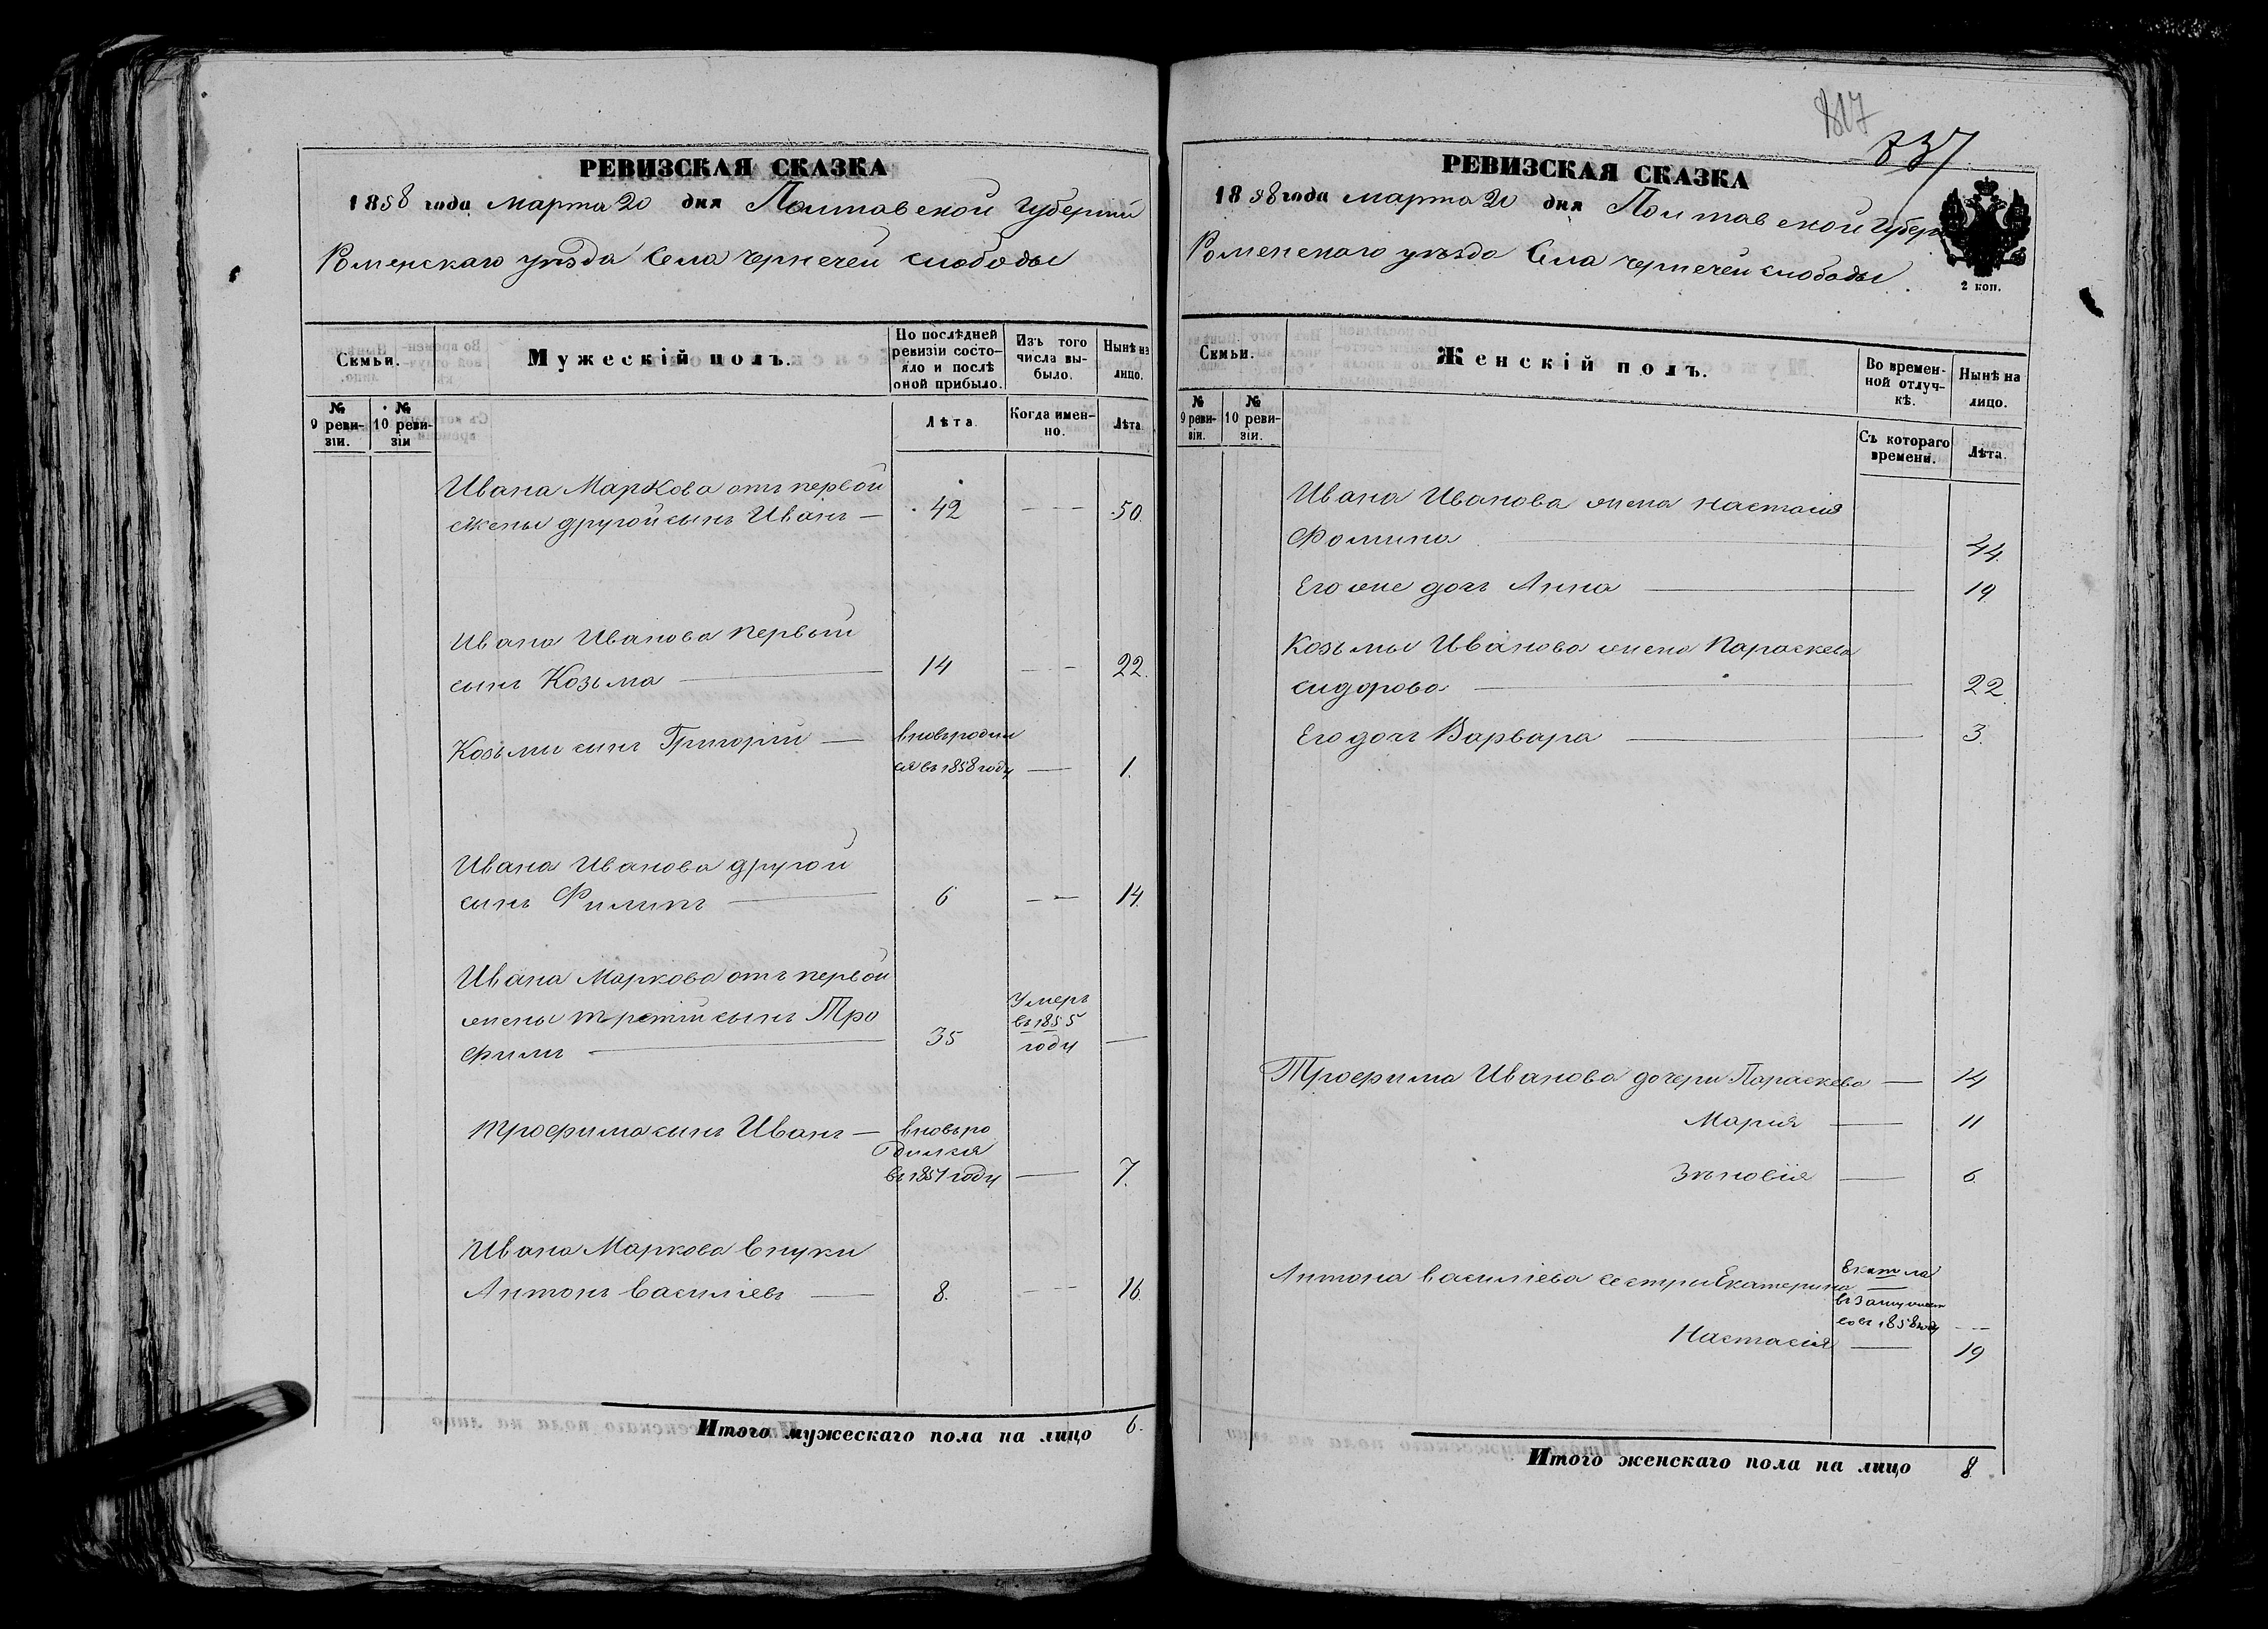 РЕВИЗСКАЯ СКАЗКА
1858 года марта 20 дня Полтавской Губернiи
Роменскаго уѣзда Села чернечей слободы
Семьи.
Мужескiй полъ.
По послѣдней ревизiи состо-
яло и послѣ оной прибыло.
Изъ того числа вы-
было.
Нынѣ на лицо.
№ 9 реви-
зiи.
№ 10 реви-
зiи
Лѣта.
Когда имен-
но.
Лѣта
Ивана Маркова отъ первой
жены другой сынъ Иванъ — 42 — — 50.
Ивана Иванова первый
сынъ Козьма — 14 — — 22.
Козьмы сынъ Григорiй — вновь родил
ся въ 1858 году — 1.
Ивана Иванова другой
сынъ Филипъ — 6 — — 14.
Ивана Маркова отъ первой
жены третiй сынъ Тро
фимъ — 35 Умеръ
въ 1855
году —
Трофима сынъ Иванъ — вновь ро
дился
въ 1851 году — 7.
Ивана Маркова внуки
Антонъ Васильевъ — 8. — — 16.
Итого мужескаго пола на лицо 6.
817
737
РЕВИЗСКАЯ СКАЗКА
1858 года марта 20 дня Полтавской Губер
Роменскаго уѣзда Села чернечей слободы
2 коп.
Семьи.
Женскiй полъ.
Во времен-
ной отлуч-
кѣ.
Нынѣ на лицо.
№ 9 реви-
зiи.
№ 10 реви-
зiи.
Съ котораго времени.
Лѣта.
Ивана Иванова жена Настасiя
Фомина — 44.
Его же дочь Анна — 19.
Козьмы Иванова жена Параскева
Сидорова — 22
Его дочь Варвара — 3.
Трофима Иванова дочери Параскева — 14
Марiя — 11
Зѣновiя — 6.
Антона Василiева сестры Екатерина
въ замужест
во въ 1858 году — —
Настасiя — 19
Итого женскаго пола на лицо 8.